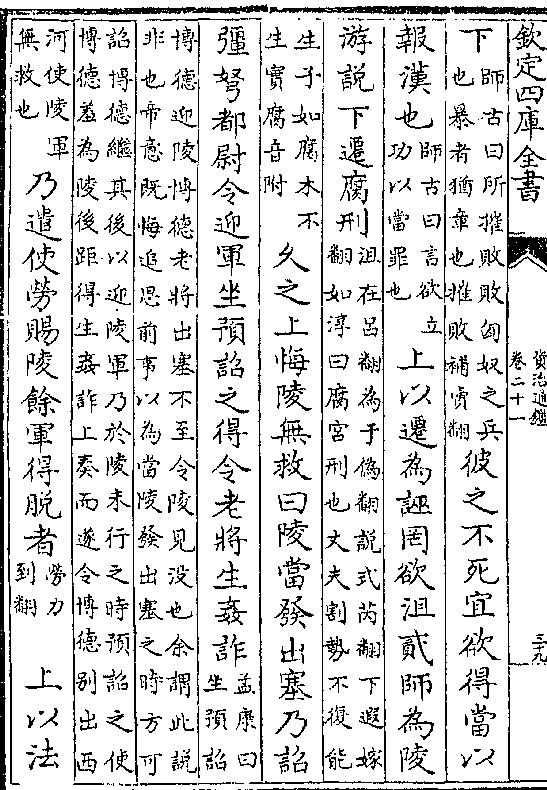 欽定四庫全書
資治通鑑
卷二十一
三十九
下師古曰所摧敗敗匈奴之兵也暴者猶章也摧敗補賣翻彼之不死宜欲得當以
報漢也師古曰言欲立功以當罪也上以遷為誣罔欲沮貳師為陵
游說下遷腐刑沮在呂翻為于偽翻說式芮翻下遐嫁翻如淳曰腐宮刑也丈夫割勢不復能
生子如腐木不生實腐音附久之上悔陵無救曰陵當發出塞乃詔
彊弩都尉令迎軍坐預詔之得令老將生姦詐孟康曰坐預詔
博德迎陵博德老將出塞不至令陵見没也余謂此說非也帝意既悔追思前事以為當陵發出塞之時方可
詔博德繼其後以迎陵軍乃於陵未行之時預詔之使博德羞為陵後距得生姦詐上奏而遂令博德别出西
河使陵軍無救也乃遣使勞賜陵餘軍得脱者勞力到翻上以法